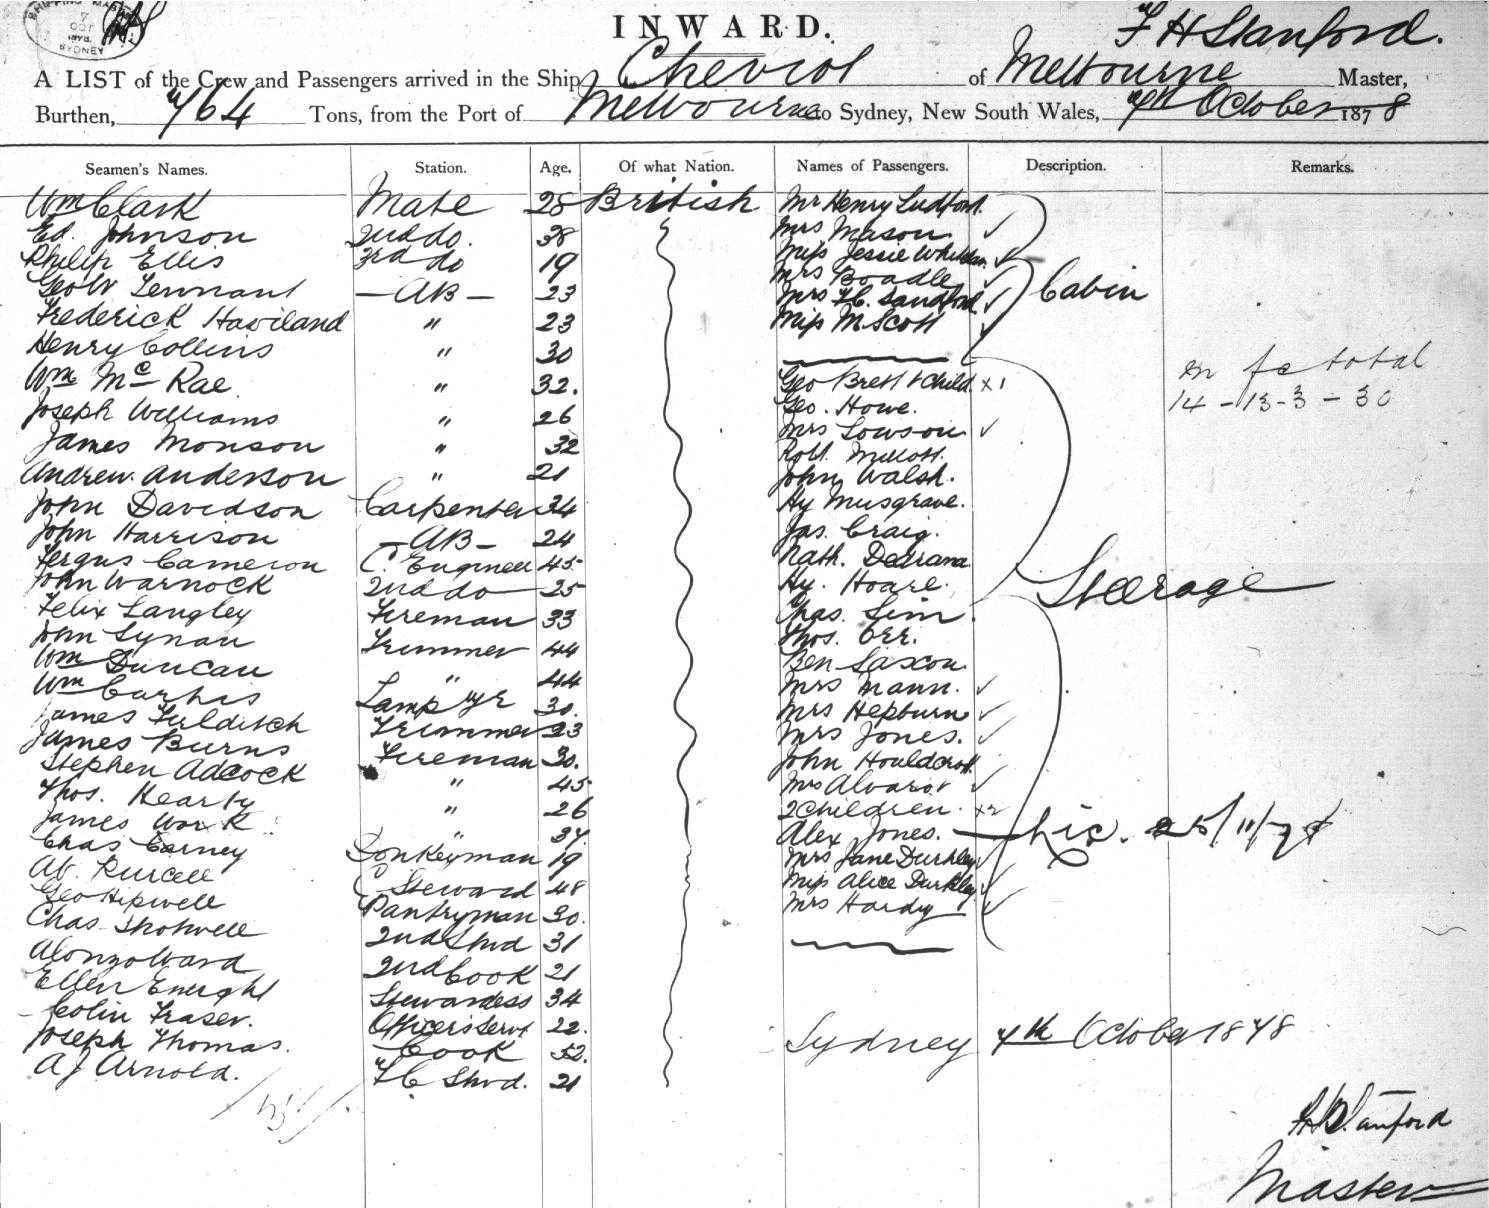 SHIPPING MASTER
7
OCT
1878
SYDNEY
INWARD.
F H Stanford.
A LIST of the Crew and Passengers arrived in the Ship Cheviot of Melbourne Master,
Burthen, 764 Tons, from the Port of Melbourne to Sydney, New South Wales, 7th October 1878
Seamen's Names. Station. Age. Of what Nation. Names of Passengers. Description. Remarks.
Wm Clark Mate 28 British Mr Henry Ludford.
Ed. Johnson 2nd do. 38 Mrs Mason
Philip Ellis 3rd do 19 Miss Jessie
Geo W Tennant — AB — 23 Mrs Boadle
Frederick Haviland " 23 Mrs F.H. Sandford
Miss M Scott
Cabin
Henry Collins " 30
Wm McRae " 32. Geo Brett & Child x1
Joseph Williams " 26 Geo. Howe.
James Monson " 32 Mrs Lowson
Andrew Anderson " 21 Robt.
John Davidson Carpenter 34 John Walsh.
John Harrison — AB — 24 Hy Musgrave.
Fergus Cameron C. Engineer 45 Jas. Craig.
John Warnock 2nd do 25 Nath.
Felix Langley Fireman 33 Hy. Hoare.
John Lynau Trimmer 44 Chas. Sim
Wm Duncan " 44 Thos. Orr.
Wm Lamp Tr 30. Ben Saxon
James Fulditch Trimmer 23 Mrs Mann.
James Burns Fireman 30. Mrs Hepburn
Stephen Adcock " 45 Mrs Jones.
Thos. Hearty " 26 John Houldcroft
James Work " 37. Mrs Alvarot
Chas Carney Donkeyman 19 2 Children x2
Ab. Purcell C Steward 48 Alex Jones.
Geo Hipwell Pantryman 30. Mrs Jane Durkley
Chas Shotwell 2nd Stwd 31 Miss Alice Durkley
Alonzo Ward 2nd Cook 21 Mrs Hardy
Ellen Enright Stewardess 34
Colin Fraser. Officers Servt 22.
Joseph Thomas. Cook 52.
A J Arnold. F C Stwd. 21
Steerage
m f c total
14 - 13 - 3 - 30
Sydney 7th October 1878
F H Stanford
Master